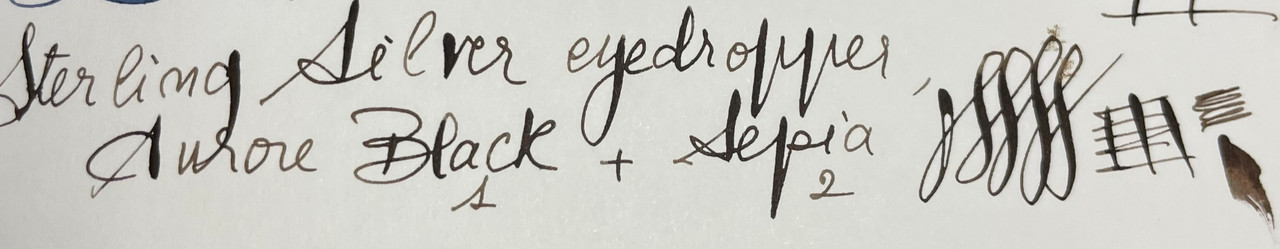 Sterling Silver eyedropper,
Aurore Black + Sepia
1 2